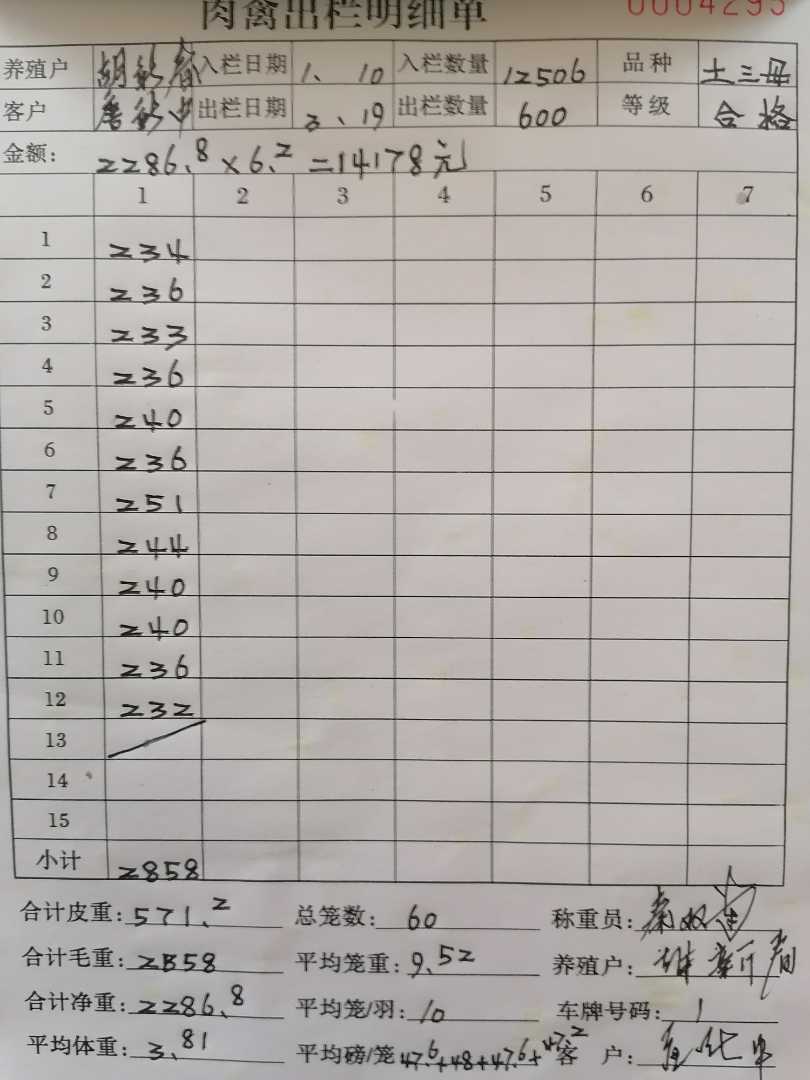 肉禽出栏明细单 0004295
养殖户 胡新春 入栏日期 1、10 入栏数量 12506 品种 土三毋
客户 唐 出栏日期 3、19 出栏数量 600 等级 合格
金额: 2286.8 × 6.2 = 14178元
1 2 3 4 5 6 7
1 234
2 236
3 233
4 236
5 240
6 236
7 251
8 244
9 240
10 240
11 236
12 232
13
14
15
小计 2858
合计皮重: 571.2 总笼数: 60 称重员: 秦
合计毛重: 2858 平均笼重: 9.52 养殖户:
合计净重: 2286.8 平均笼/羽: 10 车牌号码: 1
平均体重: 3.81 平均磅/笼 47.6+48+47.6+47.2 客 户: